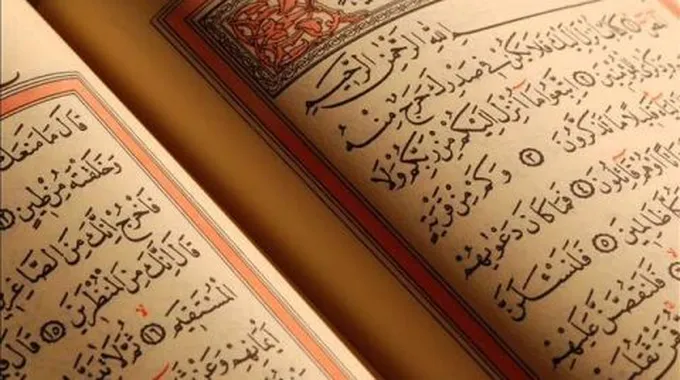 الله الرحمن الرحيم
كِتَابٌ اُنْزِلَ اِلَيْكَ فَلَا يَكُنْ فِى صَدْرِكَ حَرَجٌ مِنْهُ
وَذِكْرٰى لِلْمُؤْمِنِينَ ٢ اِتَّبِعُوا مَٓا اُنْزِلَ اِلَيْكُمْ مِنْ رَبِّكُمْ وَلَا
قَلِيلًا مَا تَذَكَّرُونَ ٣ وَكَمْ مِنْ قَرْيَةٍ
اَوْ هُمْ قَٓائِلُونَ ٤ فَمَا كَانَ دَعْوٰيهُمْ
ظَالِمِينَ ٥ فَلَنَسْـَٔلَنَّ
فَلَنَقُصَّنَّ عَلَيْهِمْ
قَالَ مَا مَنَعَكَ
وَخَلَقْتَهُ مِنْ طِينٍ
فَاخْرُجْ اِنَّكَ مِنَ الصَّاغِرِينَ
قَالَ اِنَّكَ مِنَ الْمُنْظَرِينَ ١٥
الْمُسْتَقِيمَ ١٦ ثُمَّ